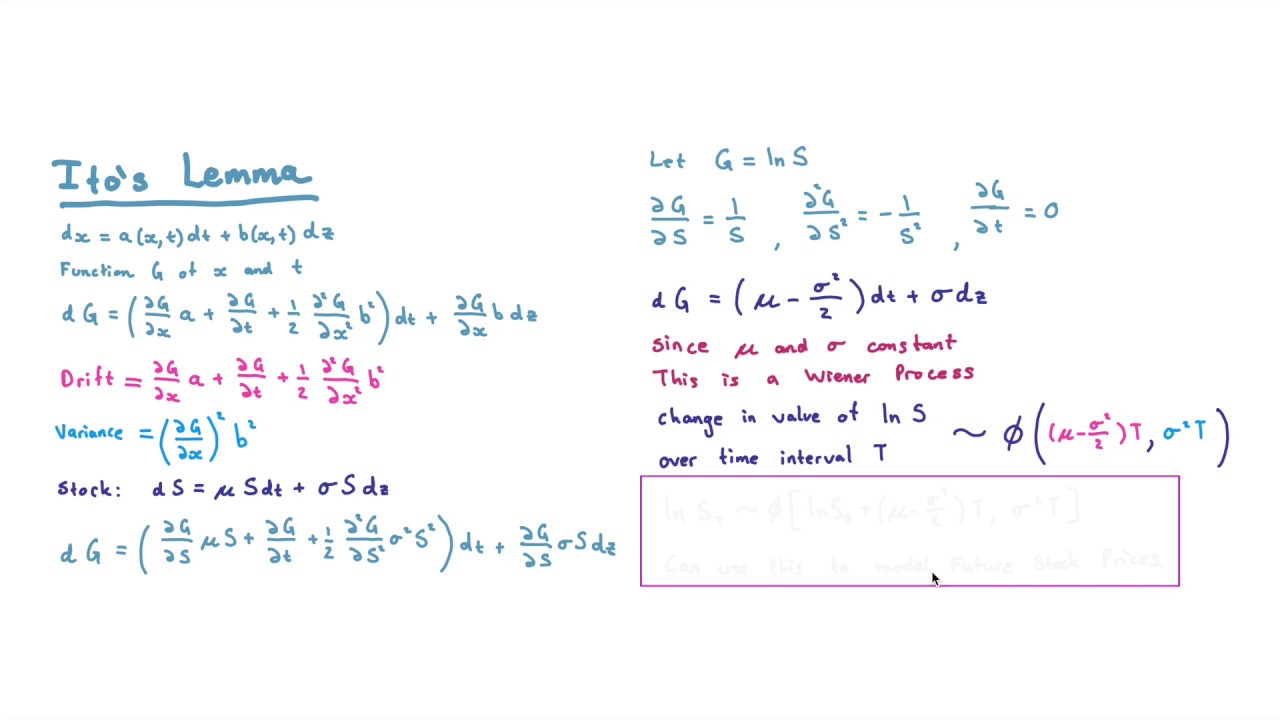 Ito's Lemma
dx = a(x,t)dt + b(x,t) dz
Function G of x and t
dG = (∂G/∂x a + ∂G/∂t + 1/2 ∂²G/∂x² b²) dt + ∂G/∂x b dz
Drift = ∂G/∂x a + ∂G/∂t + 1/2 ∂²G/∂x² b²
Variance = (∂G/∂x)² b²
Stock: dS = μSdt + σSdz
dG = (∂G/∂S μS + ∂G/∂t + 1/2 ∂²G/∂S² σ²S²) dt + ∂G/∂S σSdz
Let G = ln S
∂G/∂S = 1/S , ∂²G/∂S² = -1/S² , ∂G/∂t = 0
dG = (μ - σ²/2)dt + σdz
since μ and σ constant
This is a Wiener Process
change in value of ln S ~ φ((μ-σ²/2)T, σ²T)
over time interval T
ln S_T ~ φ[lnS₀ + (μ-σ²/2)T, σ²T]
Can use this to model Future Stock Prices.